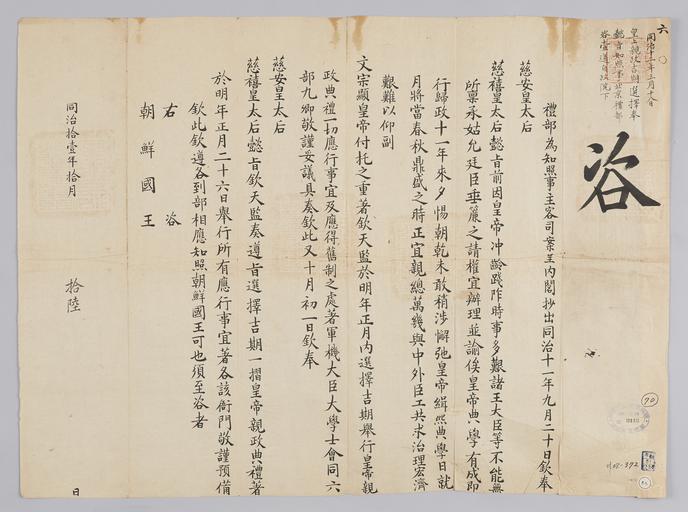 六
同治十二年三月十八日
皇上親政吉期選擇奉
懿旨知照事北京禮部
咨壹道自政院下
咨
禮部為知照事主客司案呈內閣抄出同治十一年九月二十日欽奉
慈安皇太后
慈禧皇太后懿旨前因皇帝冲齡踐阼時事多艱諸王大臣等不能無
所稟承姑允廷臣垂簾之請權宜辦理並諭俟皇帝典學有成即
行歸政十一年來夕惕朝乾未敢稍涉懈弛皇帝緝熙典學日就
月將當春秋鼎盛之時正宜親總萬幾與中外臣工共求治理宏濟
艱難以仰副
文宗顯皇帝付托之重著欽天監於明年正月內選擇吉期舉行皇帝親
政典禮一切應行事宜及應得舊制之處著軍機大臣大學士會同六
部九卿敬謹妥議具奏欽此又十月初一日欽奉
慈安皇太后
慈禧皇太后懿旨欽天監奏遵旨選擇吉期一摺皇帝親政典禮著
於明年正月二十六日舉行所有應行事宜著各該衙門敬謹預備
欽此欽遵咨到部相應知照朝鮮國王可也須至咨者
右咨
朝鮮國王
同治拾壹年拾月
拾陸
日
70